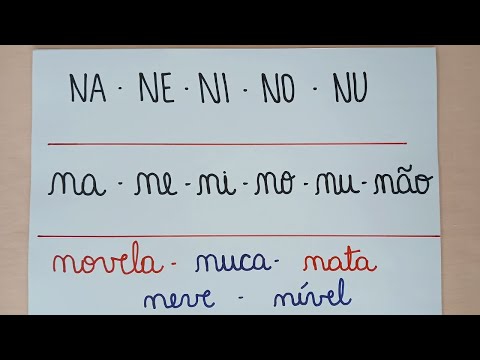 NA · NE · NI · NO · NU
na - ne - ni - no - nu - não
novela - nuca - nata
neve - nível